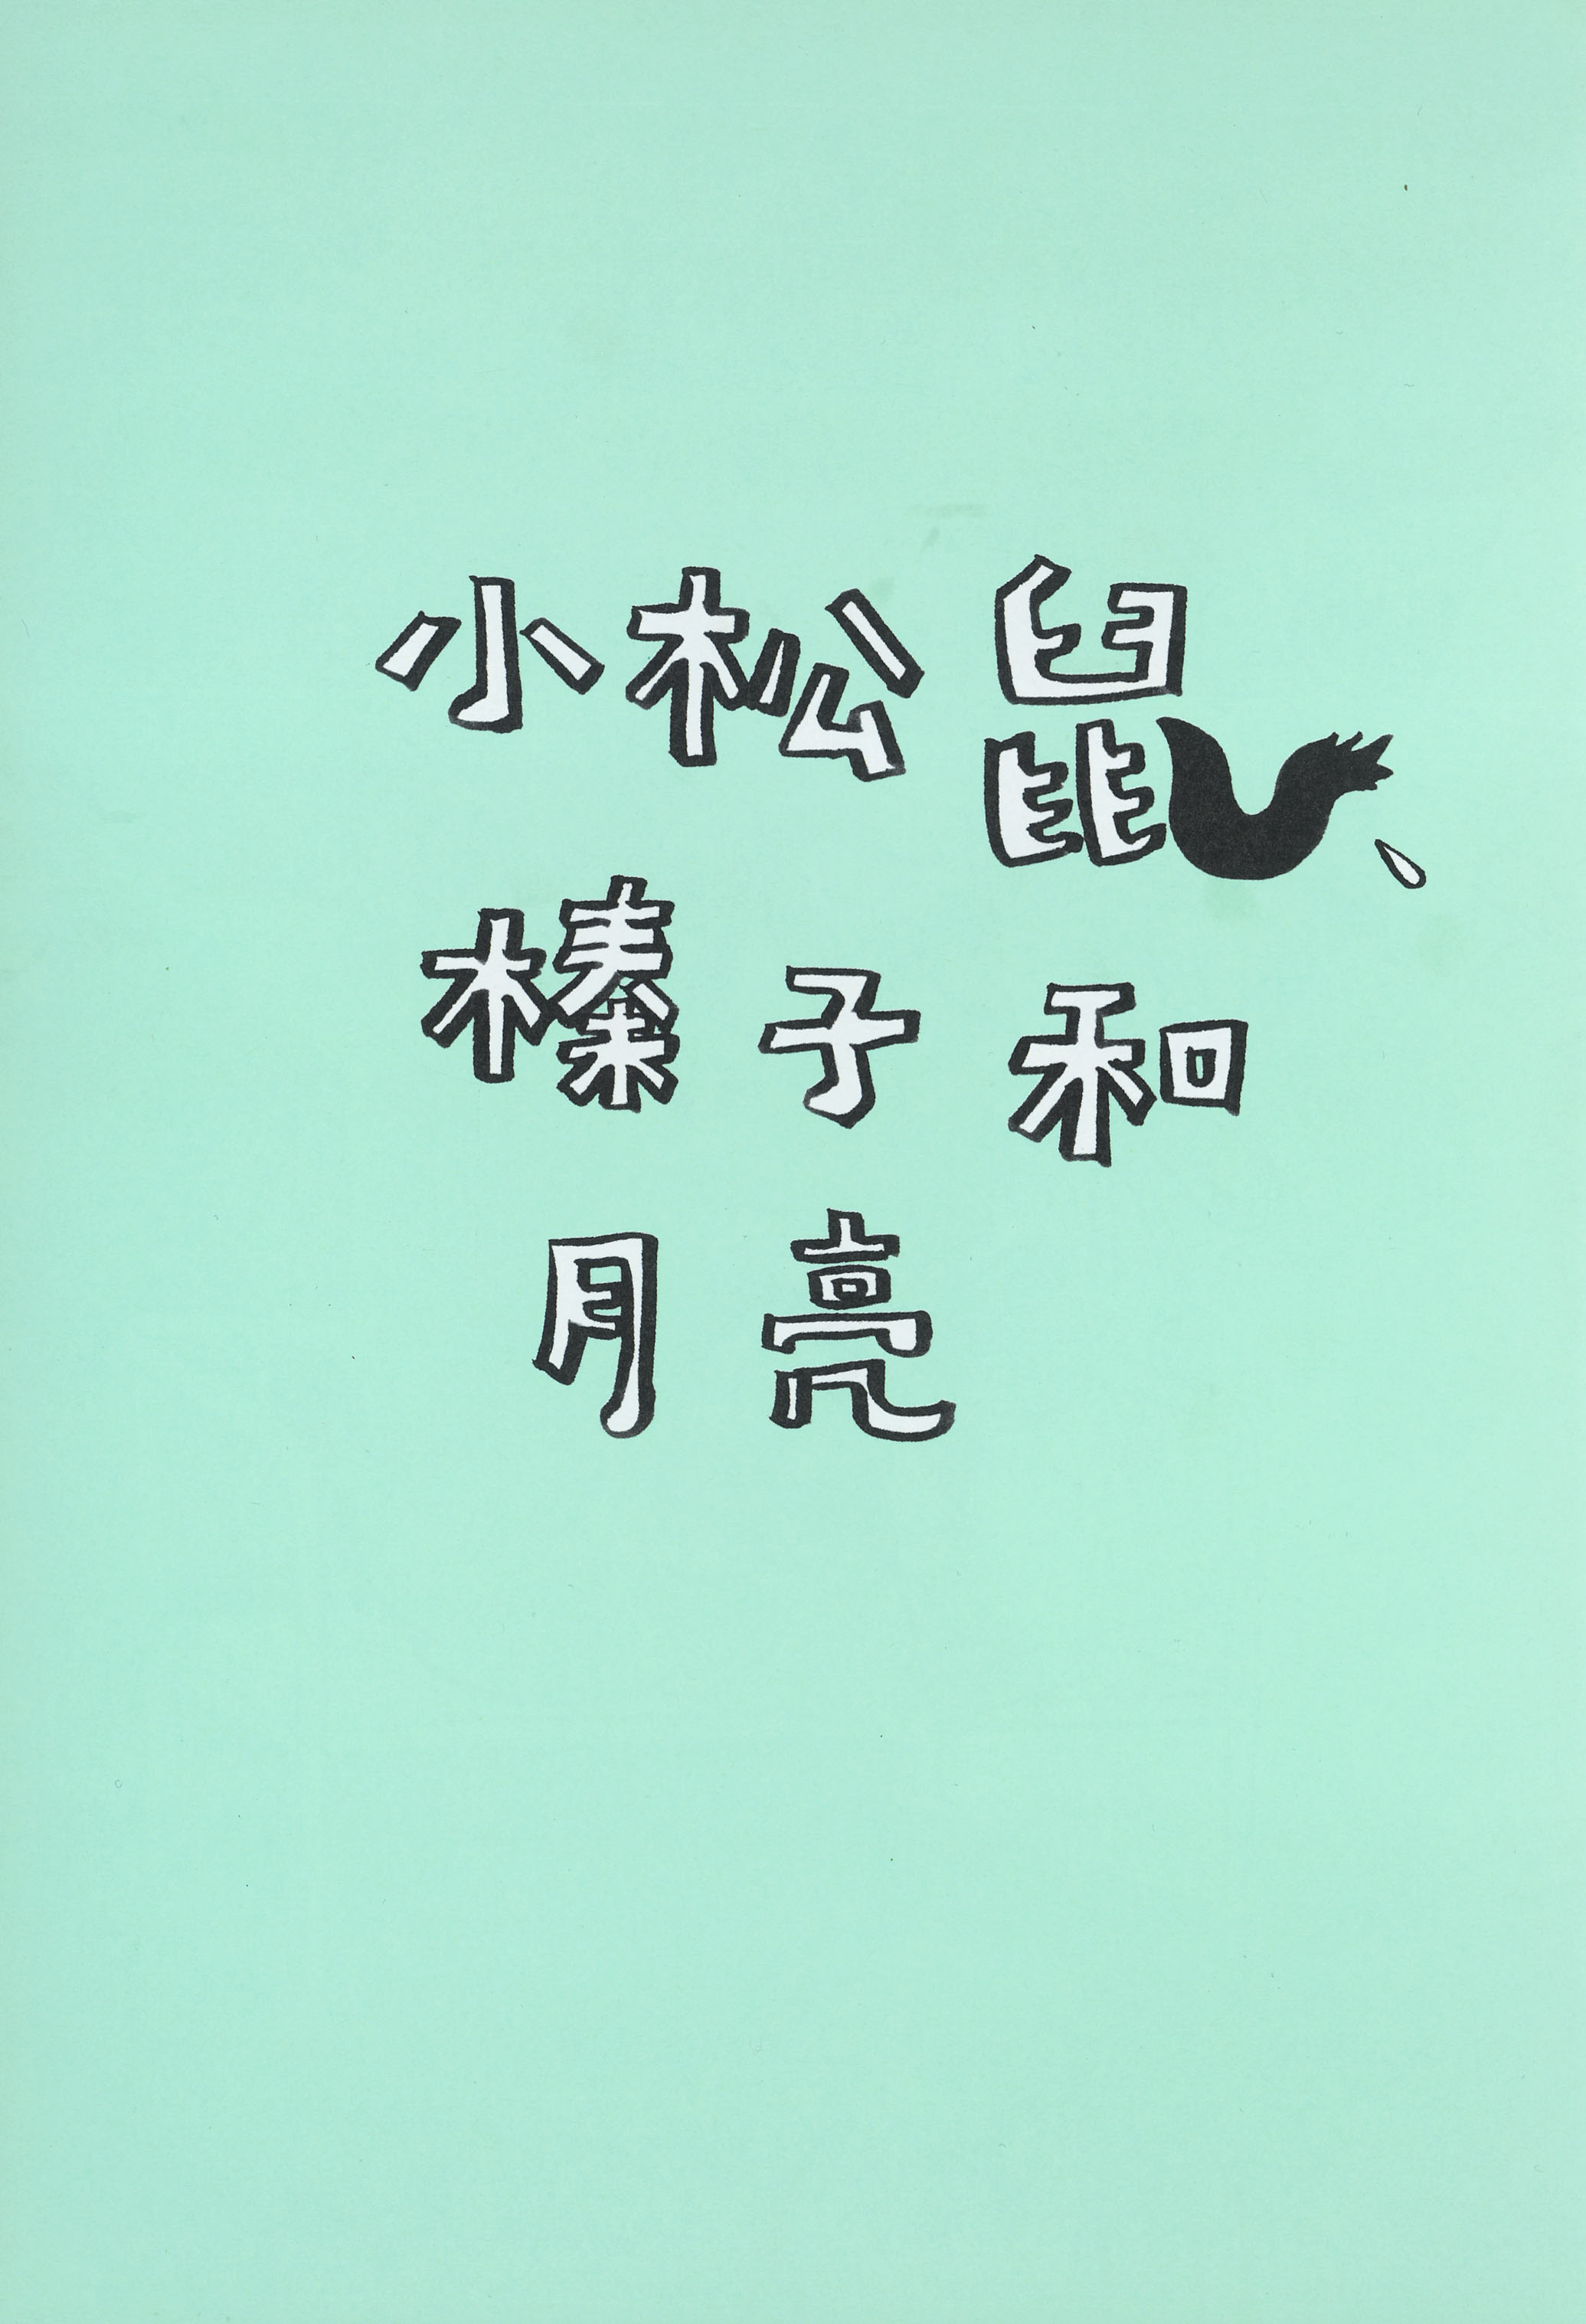 小松鼠、
榛子和
月亮